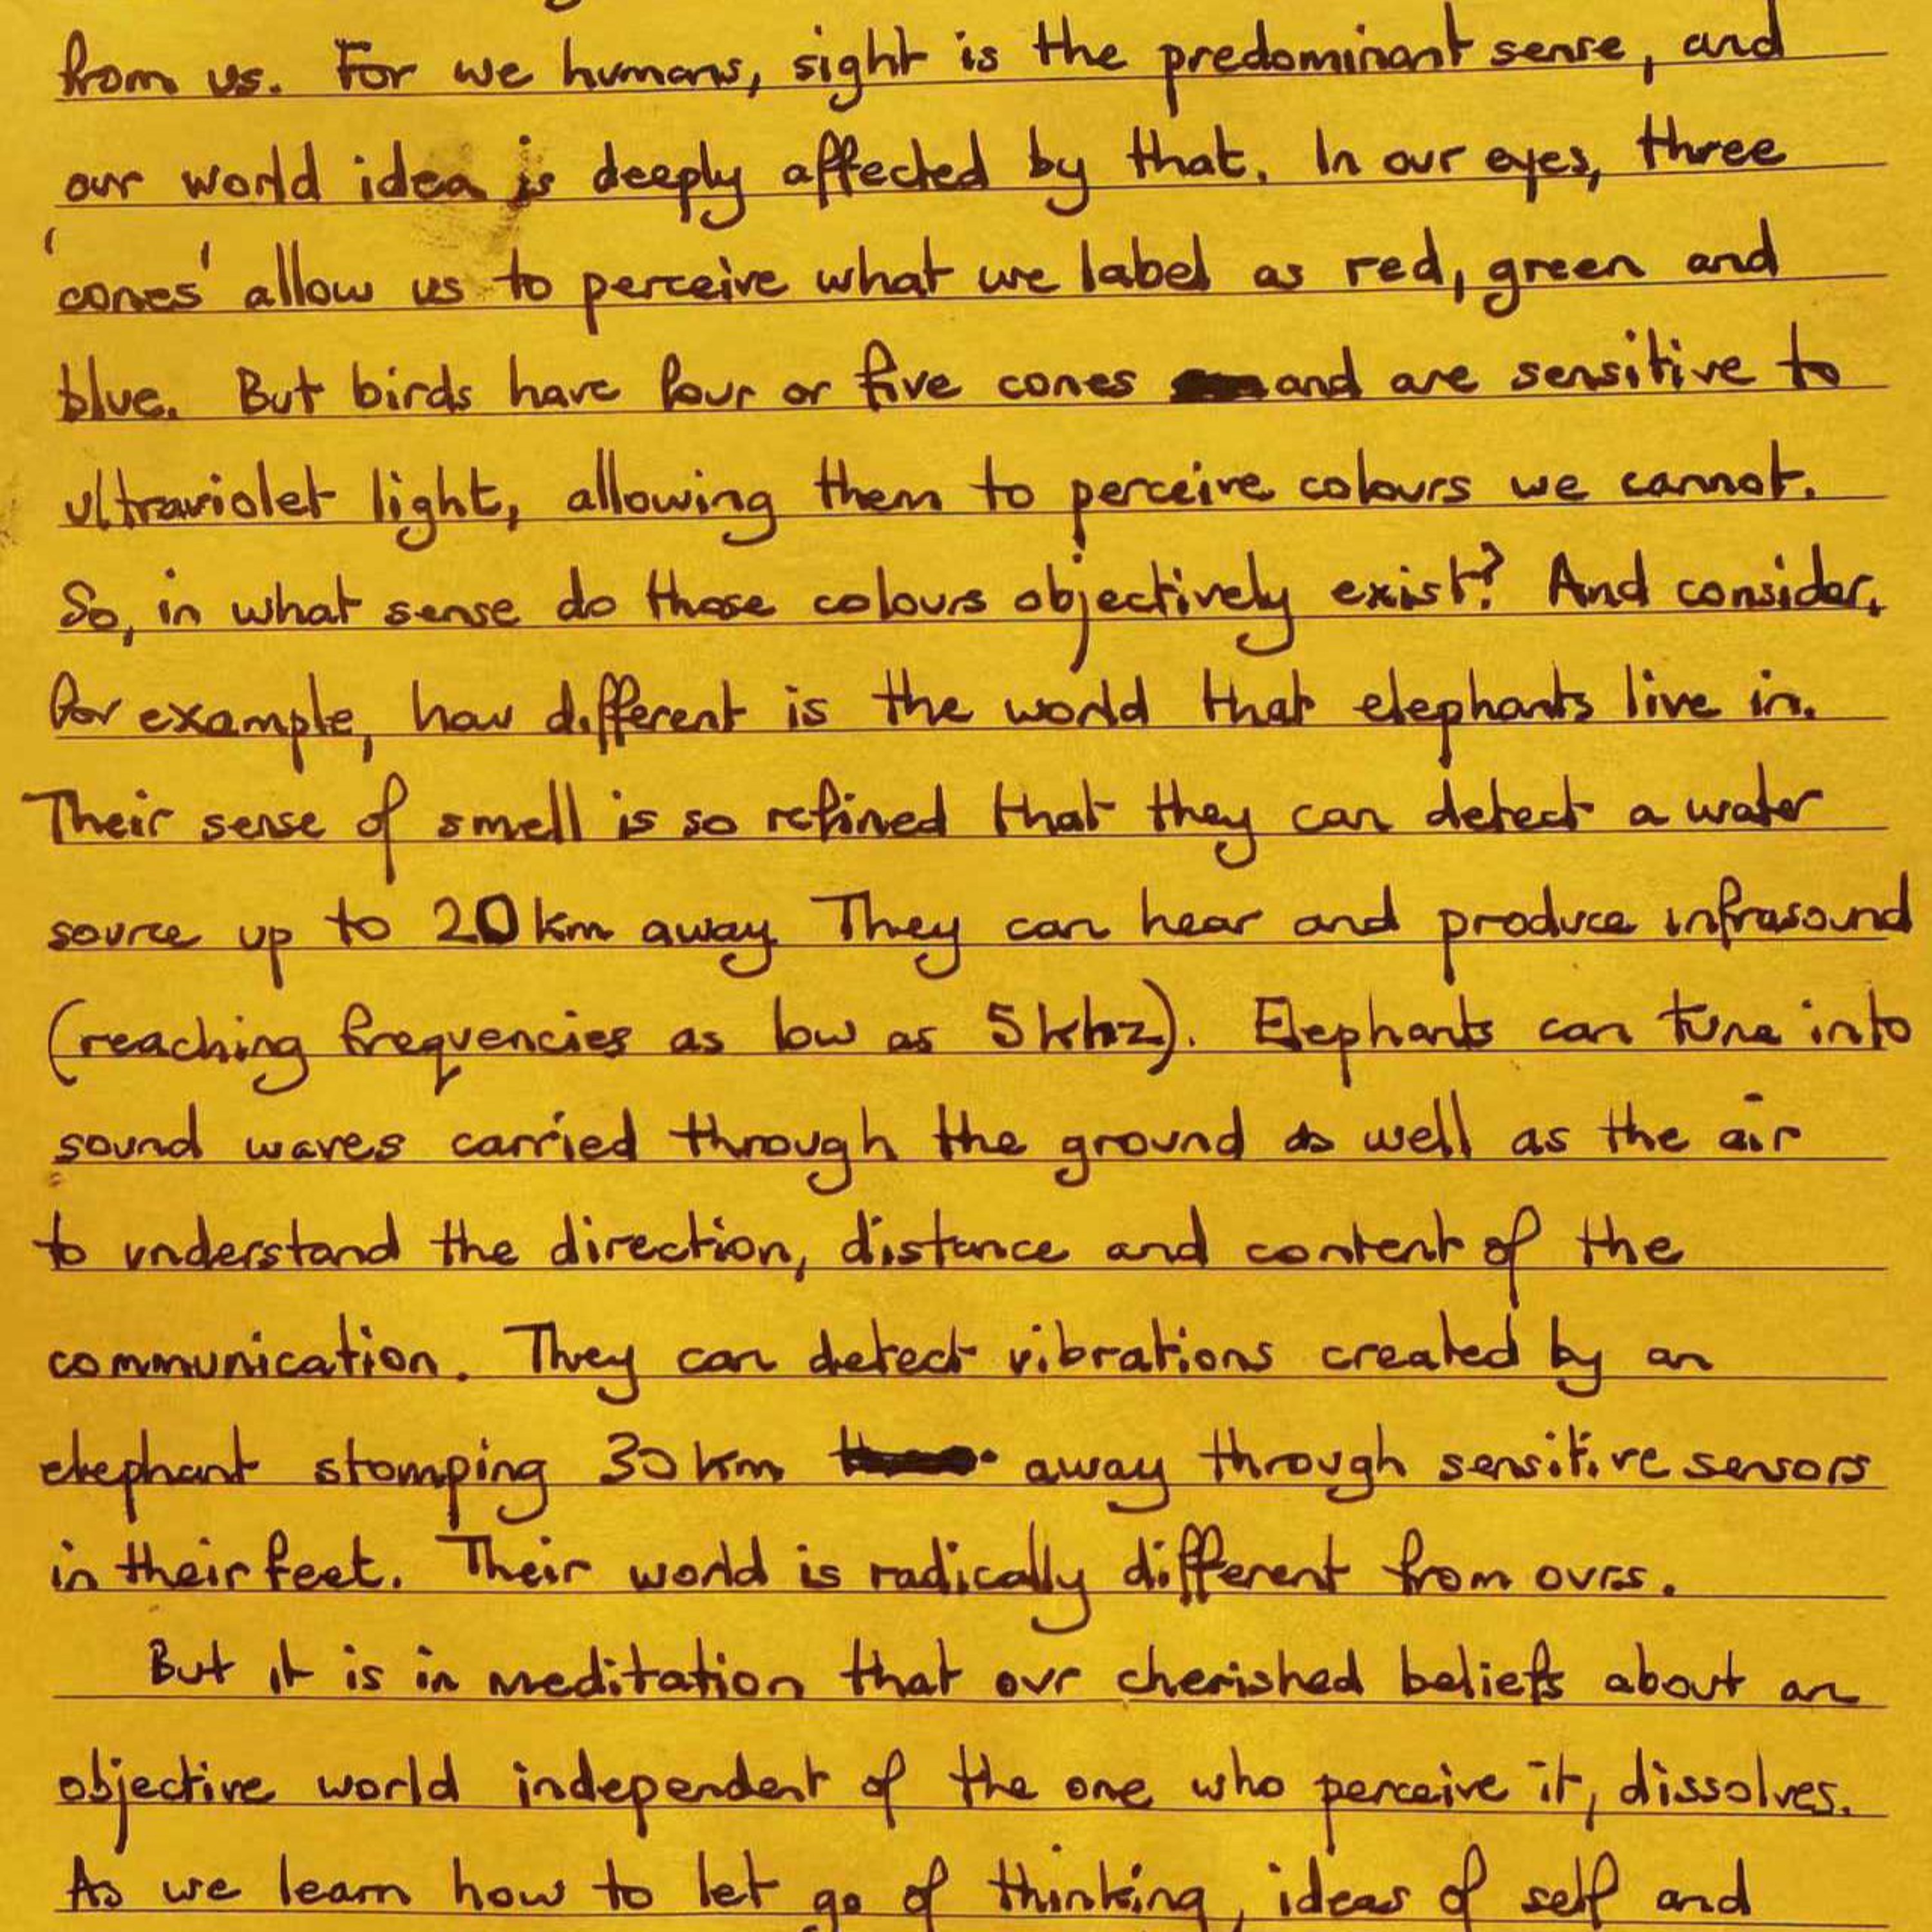 from us. For we humans, sight is the predominant sense, and
our world idea is deeply affected by that. In our eyes, three
'cones' allow us to perceive what we label as red, green and
blue. But birds have four or five cones and are sensitive to
ultraviolet light, allowing them to perceive colours we cannot.
So, in what sense do those colours objectively exist? And consider,
for example, how different is the world that elephants live in.
Their sense of smell is so refined that they can detect a water
source up to 20km away. They can hear and produce infrasound
(reaching frequencies as low as 5khz). Elephants can tune into
sound waves carried through the ground as well as the air
to understand the direction, distance and content of the
communication. They can detect vibrations created by an
elephant stomping 30km away through sensitive sensors
in their feet. Their world is radically different from ours.
But it is in meditation that our cherished beliefs about an
objective world independent of the one who perceive it, dissolves.
As we learn how to let go of thinking, ideas of self and